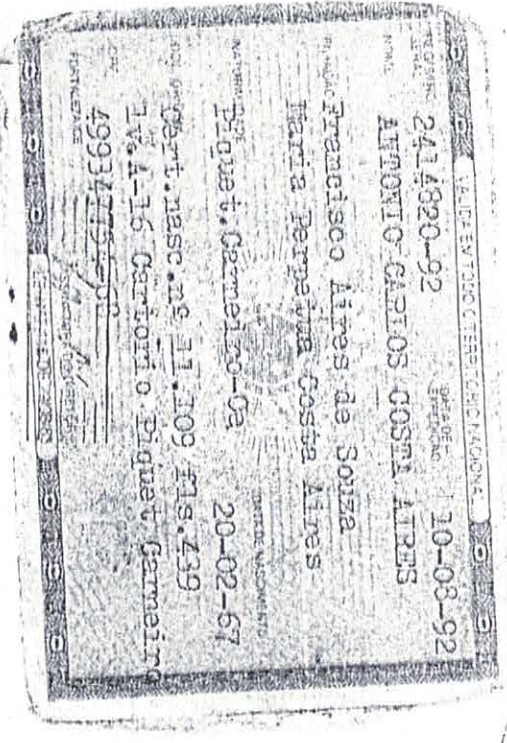 VALIDA EM TODO O TERRITORIO NACIONAL
REGISTRO GERAL 2414820-92 DATA DE EXPEDIÇÃO 10-08-92
NOME
ANTONIO CARLOS COSTA AIRES
FILIAÇÃO
Francisco Aires de Souza
Maria Costa Aires
NATURALIDADE DATA DE NASCIMENTO
Piquet.Carneiro-Ce 20-02-67
DOC
Cert.nasc.nº 11.109 fls.
lv.A-16 Cartorio Piquet Carneiro
CPF
FORTALEZA-CE